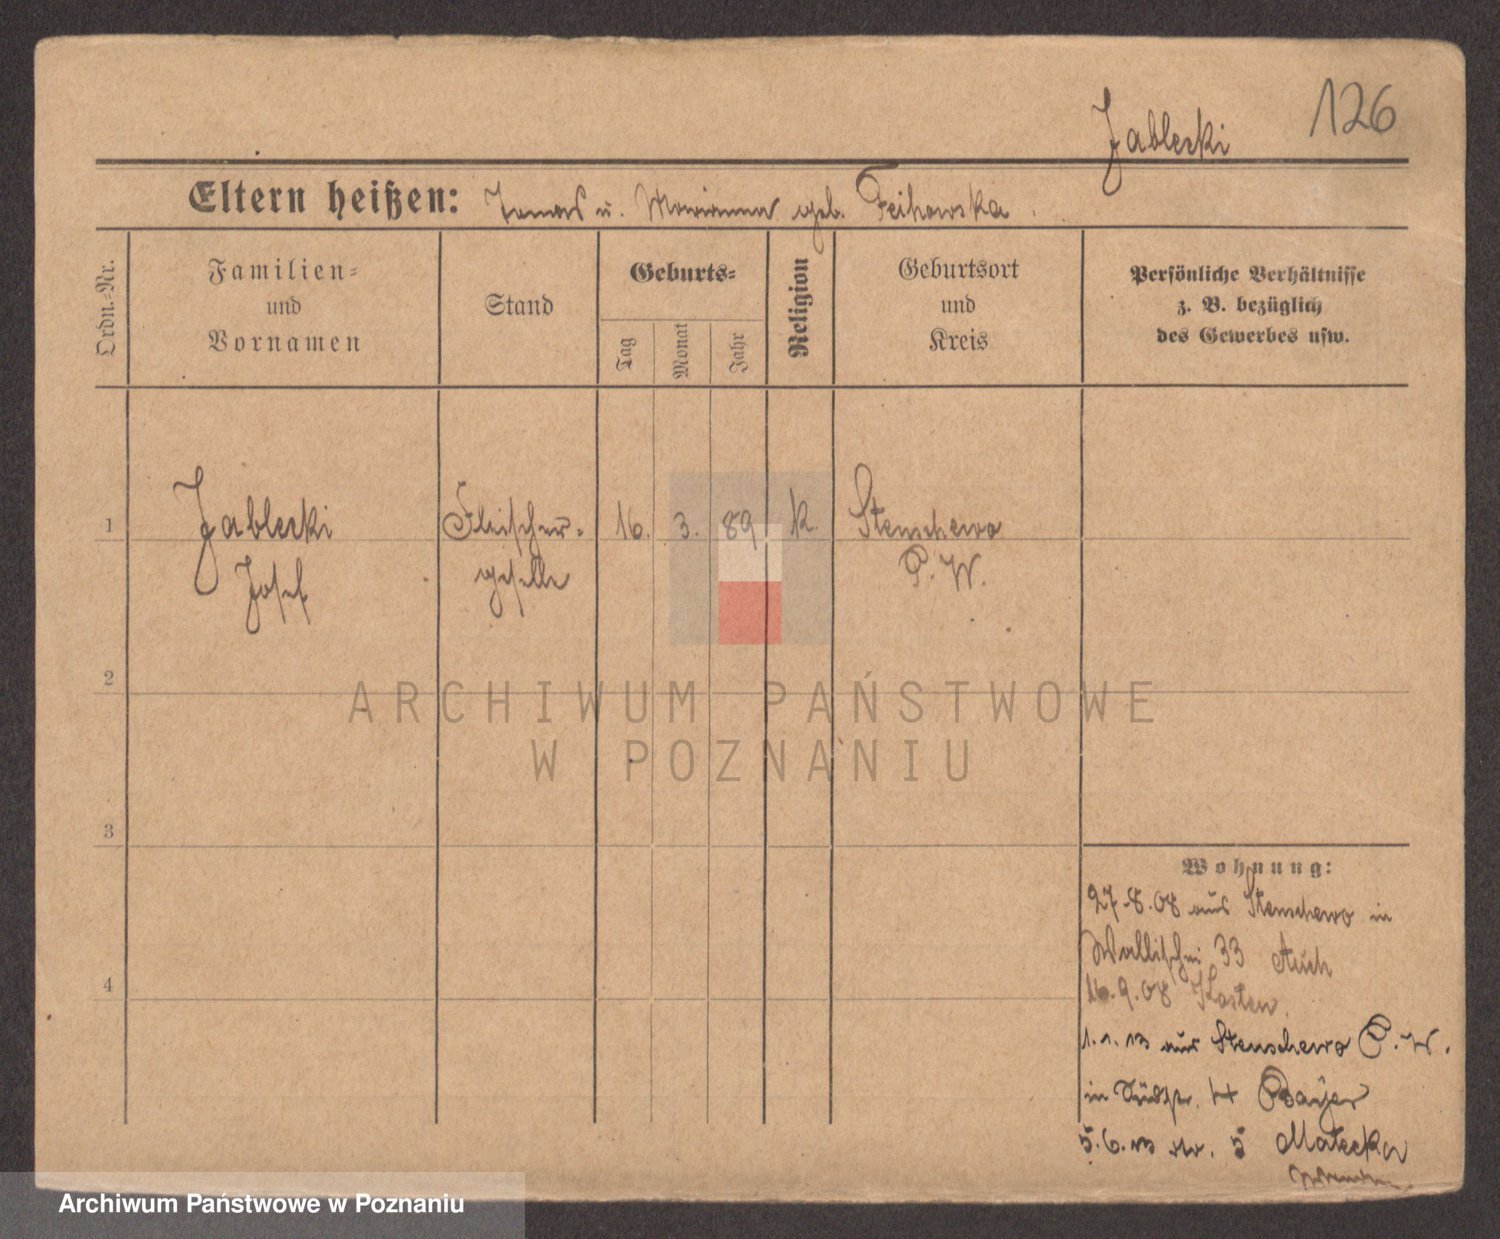 126
Jablecki
Eltern heißen: Tomas u. Marianna geb. Feihowska
Ordn.-Nr.
Familien-
und
Vornamen
Stand
Geburts-
Tag
Monat
Jahr
Religion
Geburtsort
und
Kreis
Persönliche Verhältnisse
z. B. bezüglich
des Gewerbes usw.
1
Jablecki
Josef
Fleischer-
geselle
16.
3.
89
k.
Stenschewo
P. W.
2
ARCHIWUM PAŃSTWOWE
W POZNANIU
3
4
Wohnung:
27.8.08 aus Stenschewo in
Wallischei 33
16.9.08 Kosten.
1.1.13 aus Stenschewo P. W.
in 4 Bayer
5.6.13 str. 5 Matecka
Archiwum Państwowe w Poznaniu